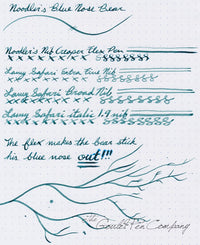 Noodler's Blue Nose Bear
Noodler's Nib Creaper Flex Pen
Lamy Safari Extra Fine Nib
Lamy Safari Broad Nib
Lamy Safari italic 1.9 nib
The flex makes the bear stick
his blue nose out!!!
The Goulet Pen Company